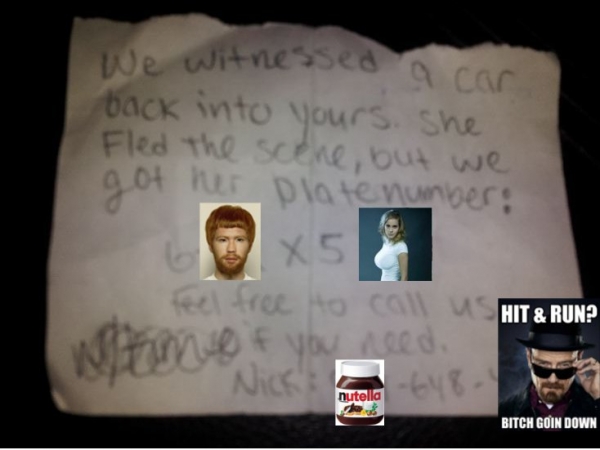 We witnessed a car
back into yours. She
Fled the scene, but we
got her plate number:
6 X5
Feel free to call us
if you need.
Nick: -648-
nutella
HIT & RUN?
BITCH GOIN DOWN